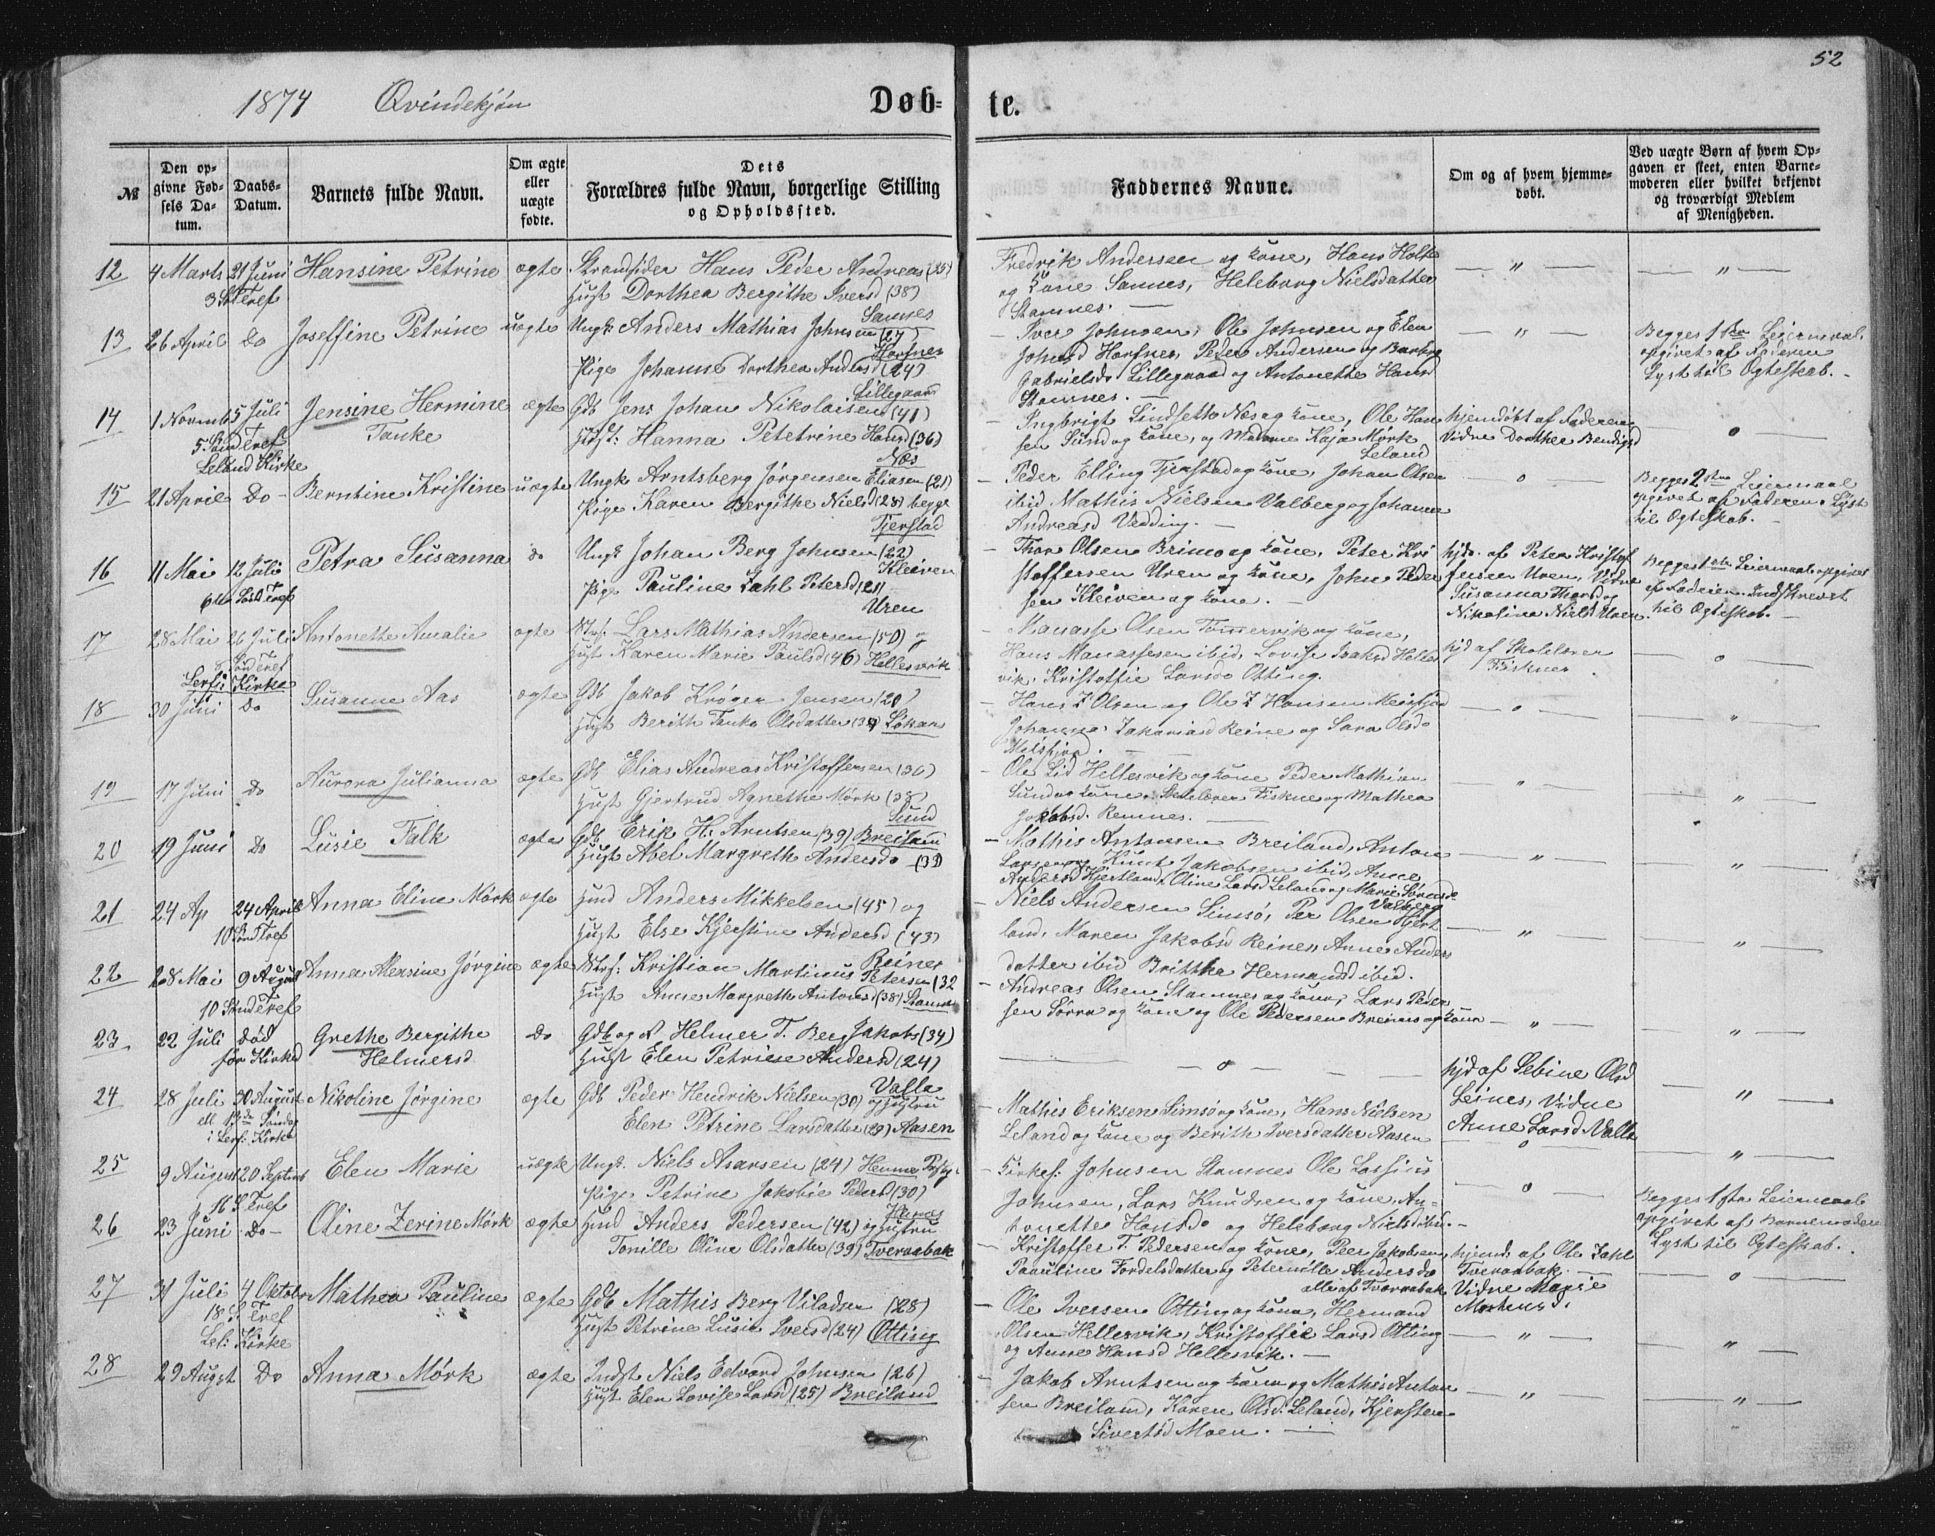 52
1874 Qvindekjøn
Døb-
te.
№
Den op-
givne Fød-
sels Da-
tum.
Daabs-
Datum.
Barnets fulde Navn.
Om ægte
eller
uægte
fødte.
Dets
Forældres fulde Navn, borgerlige Stilling
og Opholdssted.
Faddernes Navne.
Om og af hvem hjemme-
døbt.
Ved uægte Børn af hvem Op-
gaven er skeet, enten Barne-
moderen eller hvilket bekjendt
og troværdigt Medlem
af Menigheden.
12 4 Marts 21 Juni Hansine Petrine ægte Strandsider Hans Peder Andreas
Hust Dorthea Bergithe Iversd (38)
Sannes
Fredrik Andersen og Kone, Hans Holte
og Kone Sannes, Heleborg Nielsdatter
Stamnes. —
13 26 April Do Joseffine Petrine uægte Ungk Anders Mathias Johnsen (27)
Pige Johanne Dorthea Andersd (24)
Lillegaard
Iver Johnsen, Ole Johnsen og Elen
Gabrielsd. Lillegaard og Antonette Hansd
Stamnes. —
Begges 1ste Leiermaal,
opgivet af Faderen
Lyst til Ægteskab. —
14 1 Novemb 5 Juli Jensine Hermine ægte Gdb Jens Johan Nikolaisen (41)
5 Sønd Tref
Leland Kirke
Tanke
Hust: Hanna Petetrine Hansd (36)
Næs
Ingbrigt Lindseth Næs og Kone, Ole Han
sen Sund og Kone, og Madame Kaja Mørk
Leland
hjemdøbt af Faderen
Vidne Dorthea Bendigsd
15 21 April Do Berntine Kristine uægte Ungk Arntsberg Jørgensen Eliasen (21)
Pige Karen Bergithe Nielsd (28) begge
Tjerstad
Peder Elling Tjerstad og Kone, Johan Olsen
ibid Mathis Nielsen Valberg og Johanne
Andreasd Vedding. —
Begges 2den Leiermaal
opgivet af Faderen. Lyst
til Ægteskab. —
16 11 Mai 12 Juli Petra Susanna do Ungk Johan Berg Johnsen (22)
Kleiven
Pige Pauline Zahl Petersd (21)
Uren
Thor Olsen Brimo og Kone, Peter Kri
stoffersen Uren og Kone, John Peder
sen Kleiven og Kone. —
hjd. af Peter Kristof
fersen Uren, Vidne
Susanna Thorsd og
Nikoline Niels Uren.
til Ægteskab. —
17 28 Mai 26 Juli Antonette Amalie ægte Lars Mathias Andersen (50) og
Hust Karen Marie Paulsd (46) Hellesvik
Manasse Olsen Tømmervik og Kone,
Hans Manassesen ibid, Lovise Isaksd Helles
vik, Kristoffie Larsdr Otting.
hjd af Skolelærer
Fiskner
18 30 Juni Do Susanne Aas ægte Gdb Jakob Krøger Jensen (20)
Hust Berith Tanke Olsdatter
Hans Z Olsen og Ole Z Hansen Meisfjord
Johanna Zakariasd Reine og Sara Olsdr
Meisfjord.
19 17 Juni Do Aurora Julianna ægte Gdb Elias Andreas Kristoffersen (36)
Hust Gjertrud Agnethe Mørk (38)
Sund
Ole Lid Hellesvik og Kone Peder Mathias
Sund og Kone, Skolelærer Fiskne og Mathea
Jakobsd. Remnes. —
20 19 Juni Do Lusie Falk ægte Gdb Erik H: Arntsen (39) Breiland
Hust Abel Margreth Andersdr (39)
Mathis Antonsen Breiland, Anton
Larsen og Knut Jakobsen ibid, Anne
Andersd Hjertland, Oline Larsd Leland og Marie Sørensdr
Valberg
21 24 Ap 24 April Anna Eline Mørk ægte Hmd Anders Mikkelsen (45) og
10 Sønd Tref
Hust Else Kjerstine Andersd (43)
Reines
Niels Andersen Simsø, Per Olsen Hjert
land, Maren Jakobsd Reines, Anne Anders
datter ibid Britthe Hermandsd ibid.
22 28 Mai 9 August Anna Alensine Jørgine ægte Kristian Martinus Petersen (32
10 Sønd Tref
Hust Anne Margreth Antonsd (38) Stamnes
Andreas Olsen Stamnes og Kone, Lars Peder
sen Sørra og Kone og Ole Pedersen Breines og Kone
23 22 Juli død Grethe Bergithe Do Helmer T. Berg Jakobs (34)
før Kirked
Helmersd
Hust Elen Petrine Andersd (24)
Valla
24 28 Juli 30 August Nikoline Jørgine ægte Gdb Peder Hendrik Nielsen (30) og Hustru
Elen Petrine Larsdatter (29) Aasen
Mathis Eriksen Simsø og Kone, Hans Nielsen
Leland og Kone og Berith Iversdatter Aasen
hjd af Sebine Olsd
Leines, Vidne
Anne Larsd Valla
25 9 August 20 Septbr Elen Marie uægte Ungk. Niels Asarsen (24)
16 S Tref
Pige Petrine Jakobie Pedersd (30)
Kirkes: Johnsen Stamnes Ole Lassius
Johnsen, Lars Knudsen og Kone, An-
tonette Hansdr og Heleborg Niels ibid. —
Begges 1ste Leiermaal
opgivet af Barnemoderen
Lyst til Ægteskab. —
26 23 Juni Do Oline Zerine Mørk ægte Hmd Anders Pedersen (42) og Hustru
Tonille Oline Olsdatter (39) Tveraabak
Kristoffer T. Pedersen og Kone, Peer Jakobsen,
Pauline Tordelsdatter og Peternille Andersdr
alle af Tveraabak
hjemd. af Ole Zahl
Tveraabak. —
Vidne Marie
27 31 Juli 4 Oktobr Mathea Pauline ægte Gdb Mathis Berg Viladsen (28)
18 S Tref
Lei: Kirke
Hust Petrine Lusie Iversd (24) Otting
Ole Iversen Otting og Kone, Hermand
Olsen Hellesvik, Kristoffie Larsd Otting
og Anne Hansd Hellesvik. —
28 29 August Do Anna Mørk ægte Indst Niels Edvard Johnsen (26)
Hust Elen Lovise Larsd (25) Breiland
Jakob Arntsen og Kone og Mathis Anton
sen Breiland, Karen Olsd. Leland, Kjersten
Sivertsd Moen. —